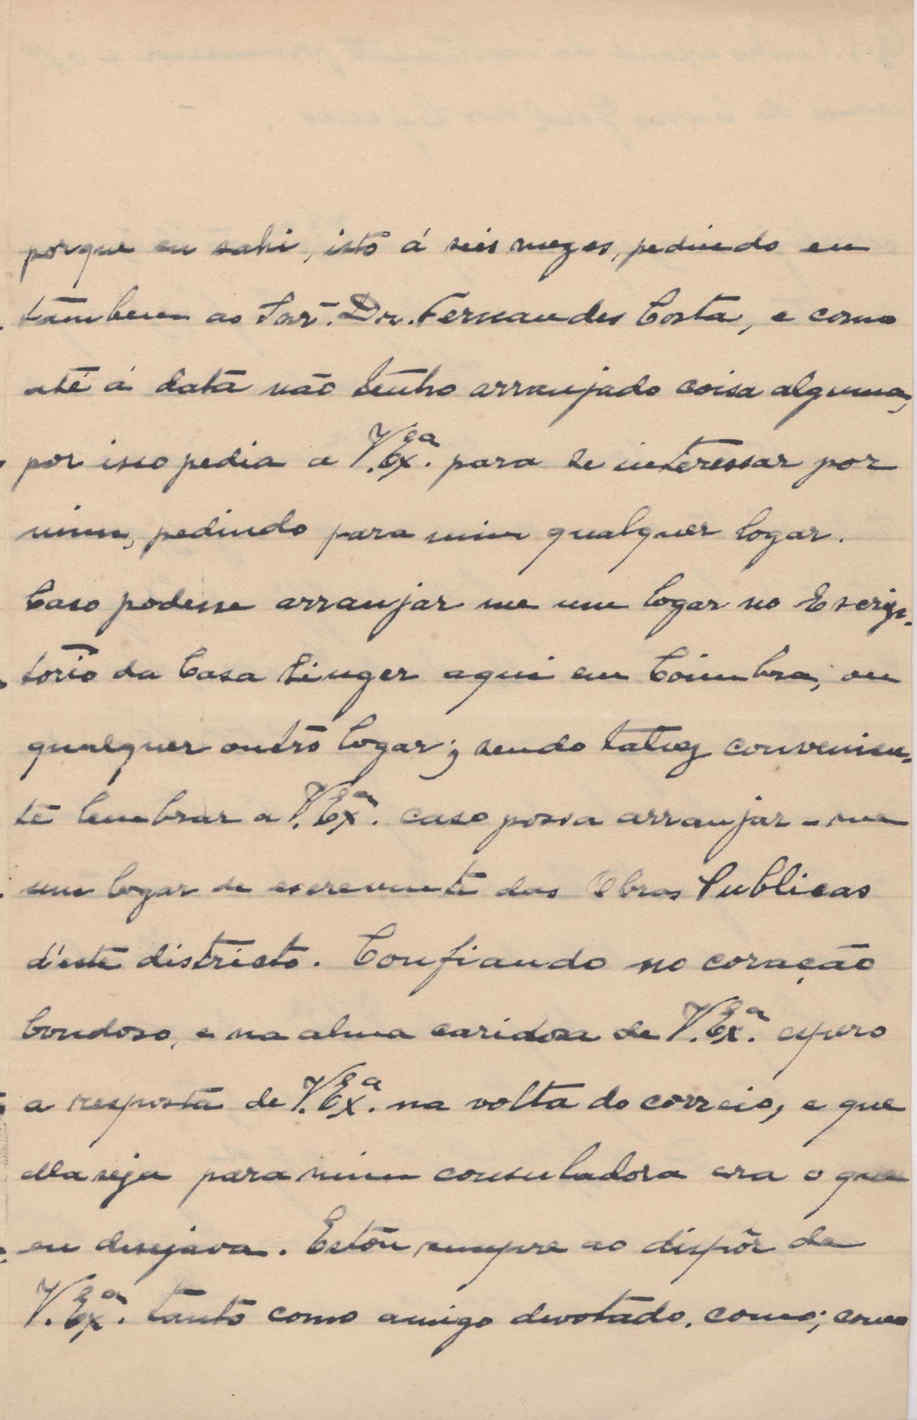 porque eu sahi, isto á seis mezes, pedindo eu
tambem ao Snr. Dr. Fernandes Costa, e como
até á data não tenho arranjado coisa alguma,
por isso pedia a V. Exª. para se interessar por
mim, pedindo para mim qualquer logar.
Caso podesse arranjar me um logar no Escrip-
torio da Casa Singer aqui em Coimbra, ou
qualquer outro logar; sendo talvez convenien-
te lembrar a V. Exª. caso possa arranjar-me
um logar de escrevente das Obras Publicas
d'este districto. Confiando no coração
bondoso, e na alma caridosa de V. Exª. espero
a resposta de V. Exª. na volta do correio, e que
ella seja para mim consuladora era o que
eu desejava. Estou sempre ao dispôr de
V. Exª. tanto como amigo devotado. como; como